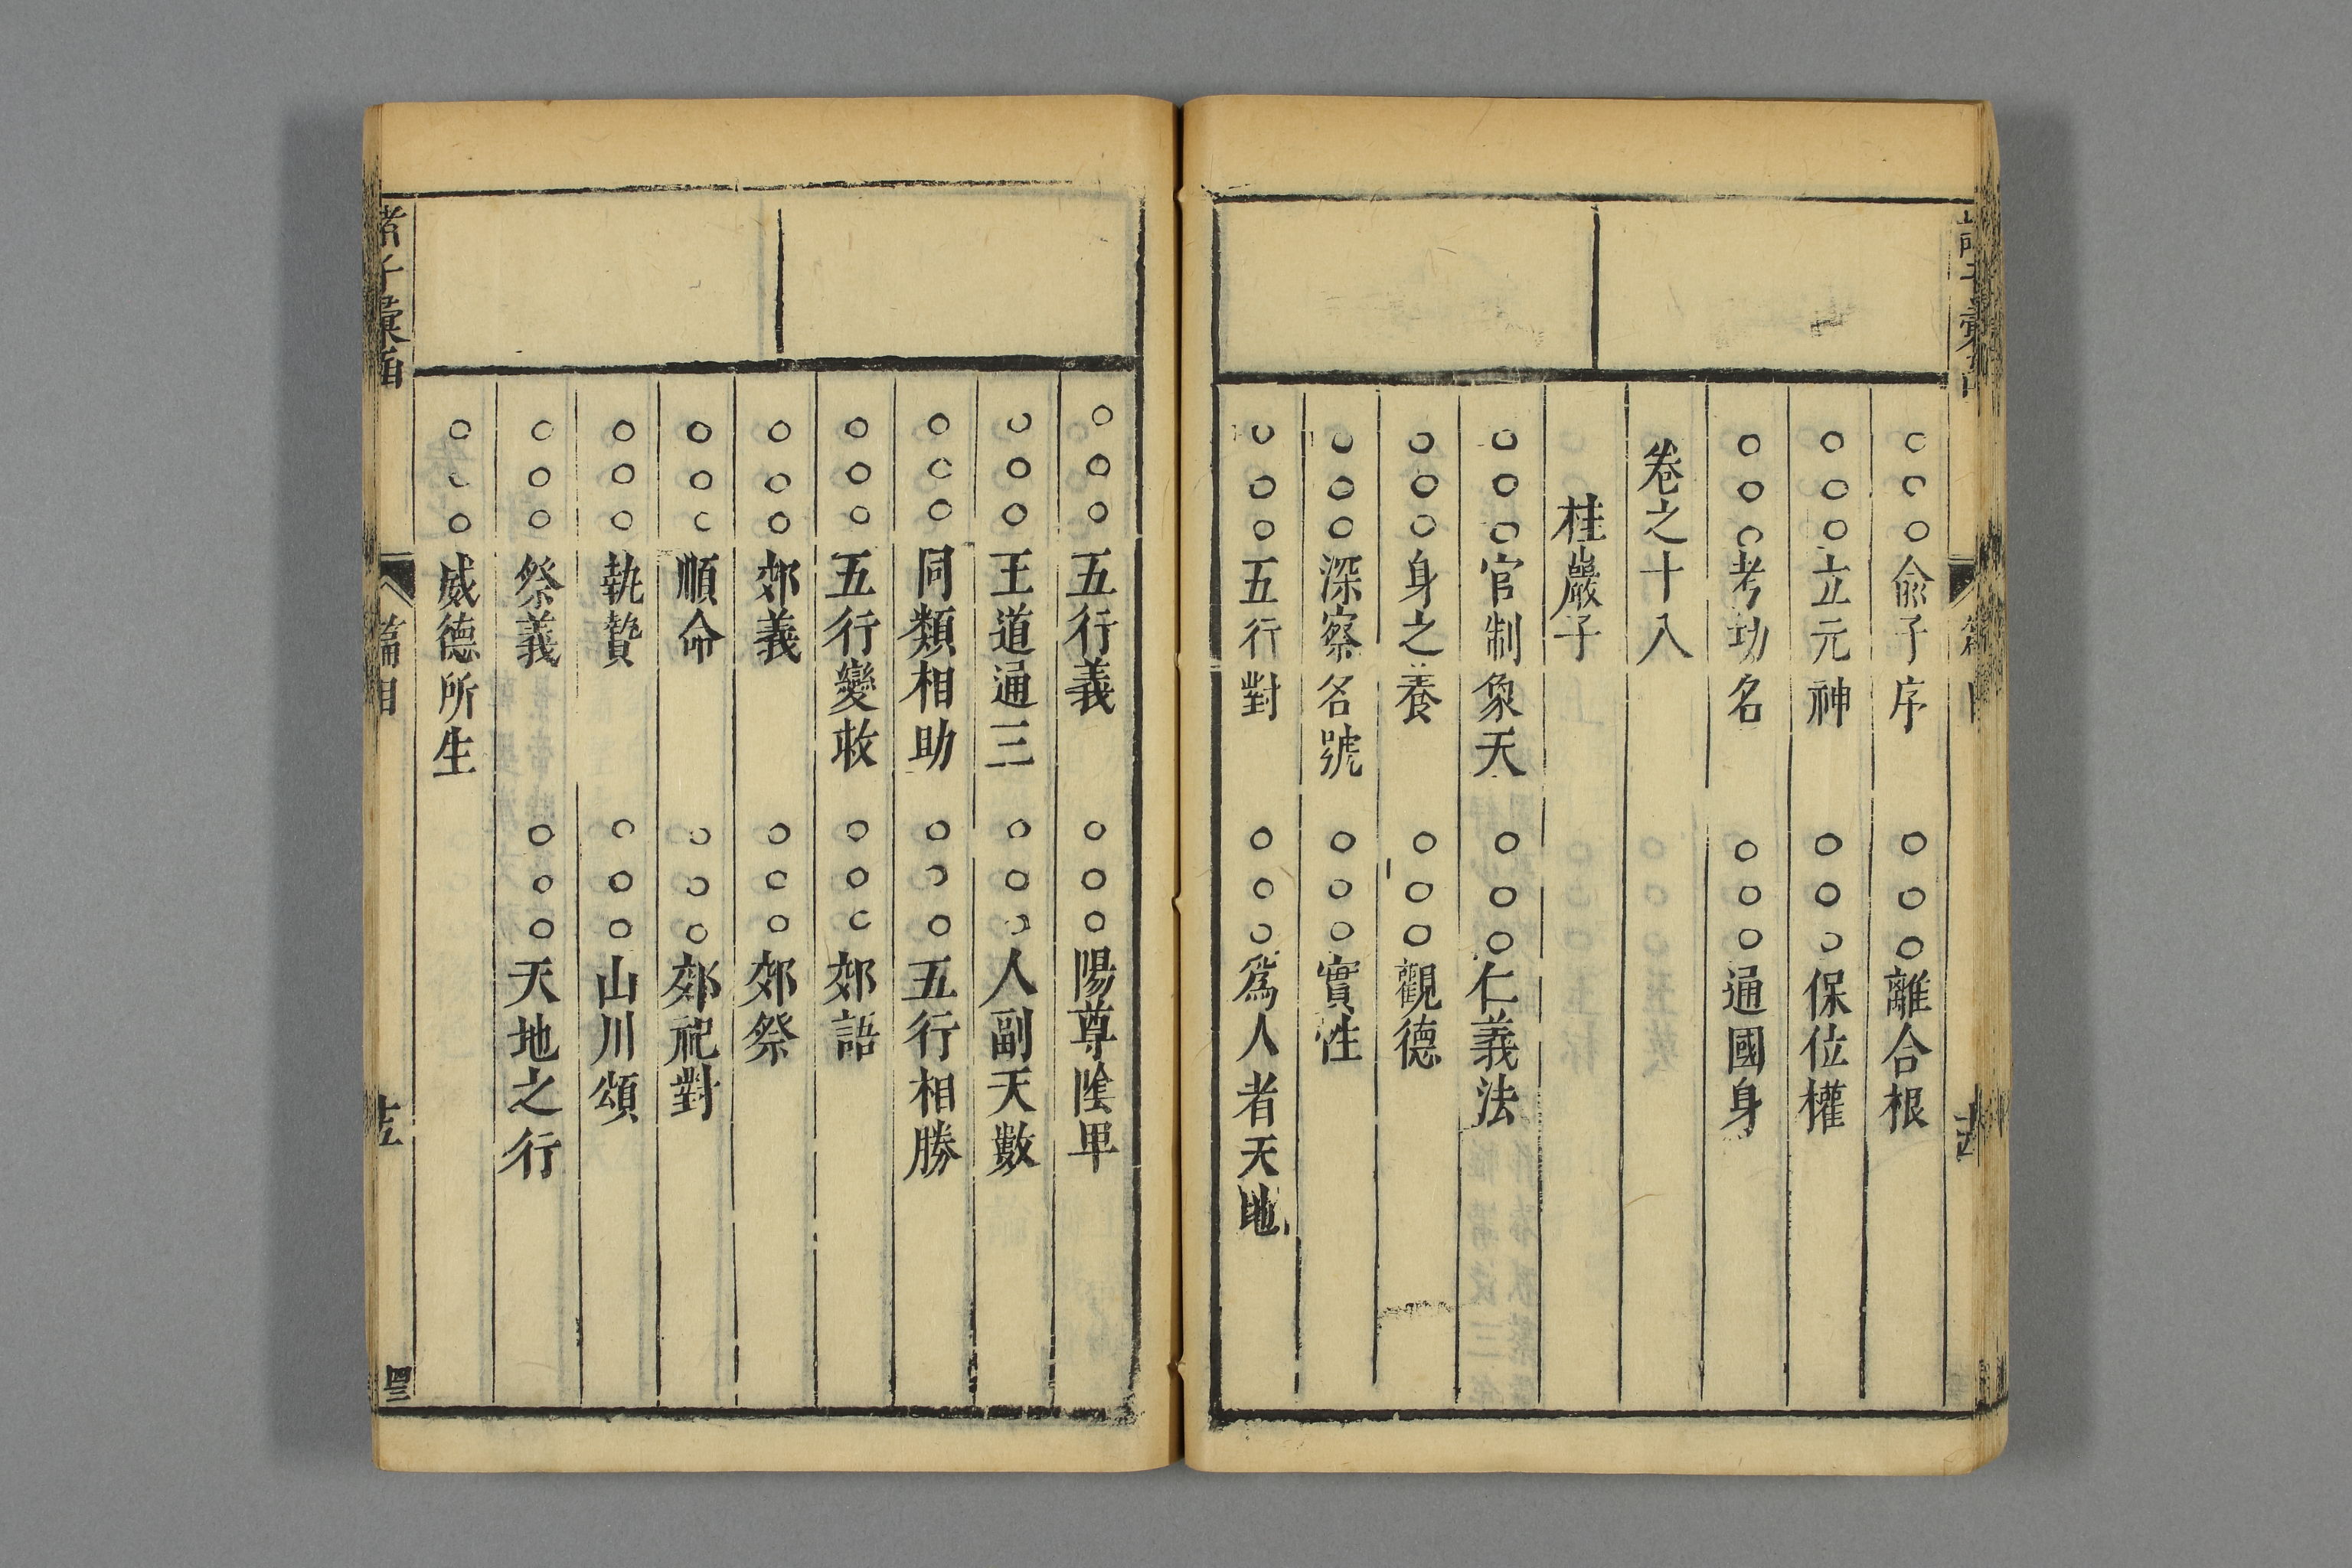 ○○○俞子序 ○○○離合根
○○○立元神 ○○○保位權
○○○考功名 ○○○通國身
卷之十八
桂巖子
○○○官制象天 ○○○仁義法
○○○身之養 ○○○觀德
○○○深察名號 ○○○實性
○○○五行對 ○○○爲人者天地
○○○五行義 ○○○陽尊陰卑
○○○王道通三 ○○○人副天數
○○○同類相助 ○○○五行相勝
○○○五行變救 ○○○郊語
○○○郊義 ○○○郊祭
○○○順命 ○○○郊祀對
○○○執贄 ○○○山川頌
○○○祭義 ○○○天地之行
○○○威德所生
諸子彙函 篇目